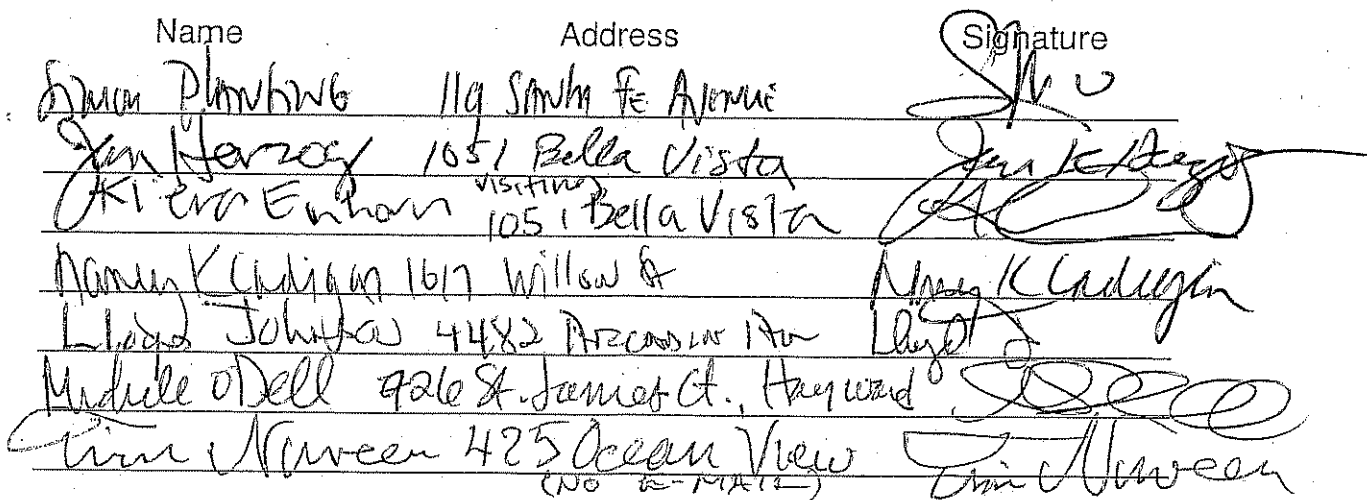 Name Address Signature
Simon PLANTING 119 SANTA FE AVENUE
Jan Herzog 1051 Bella Vista Jan K Herzog
visiting
Kiera Einhorn 1051 Bella Vista
Nancy K Cadigan 1617 Willow St Nancy K Cadigan
Lloyd Johnson 4482 Ave Lloyd
Michele O'Dell 926 St. James Ct., Hayward
Tim Nurveen 425 Ocean View Tim Nurveen
(NO E-MAIL)